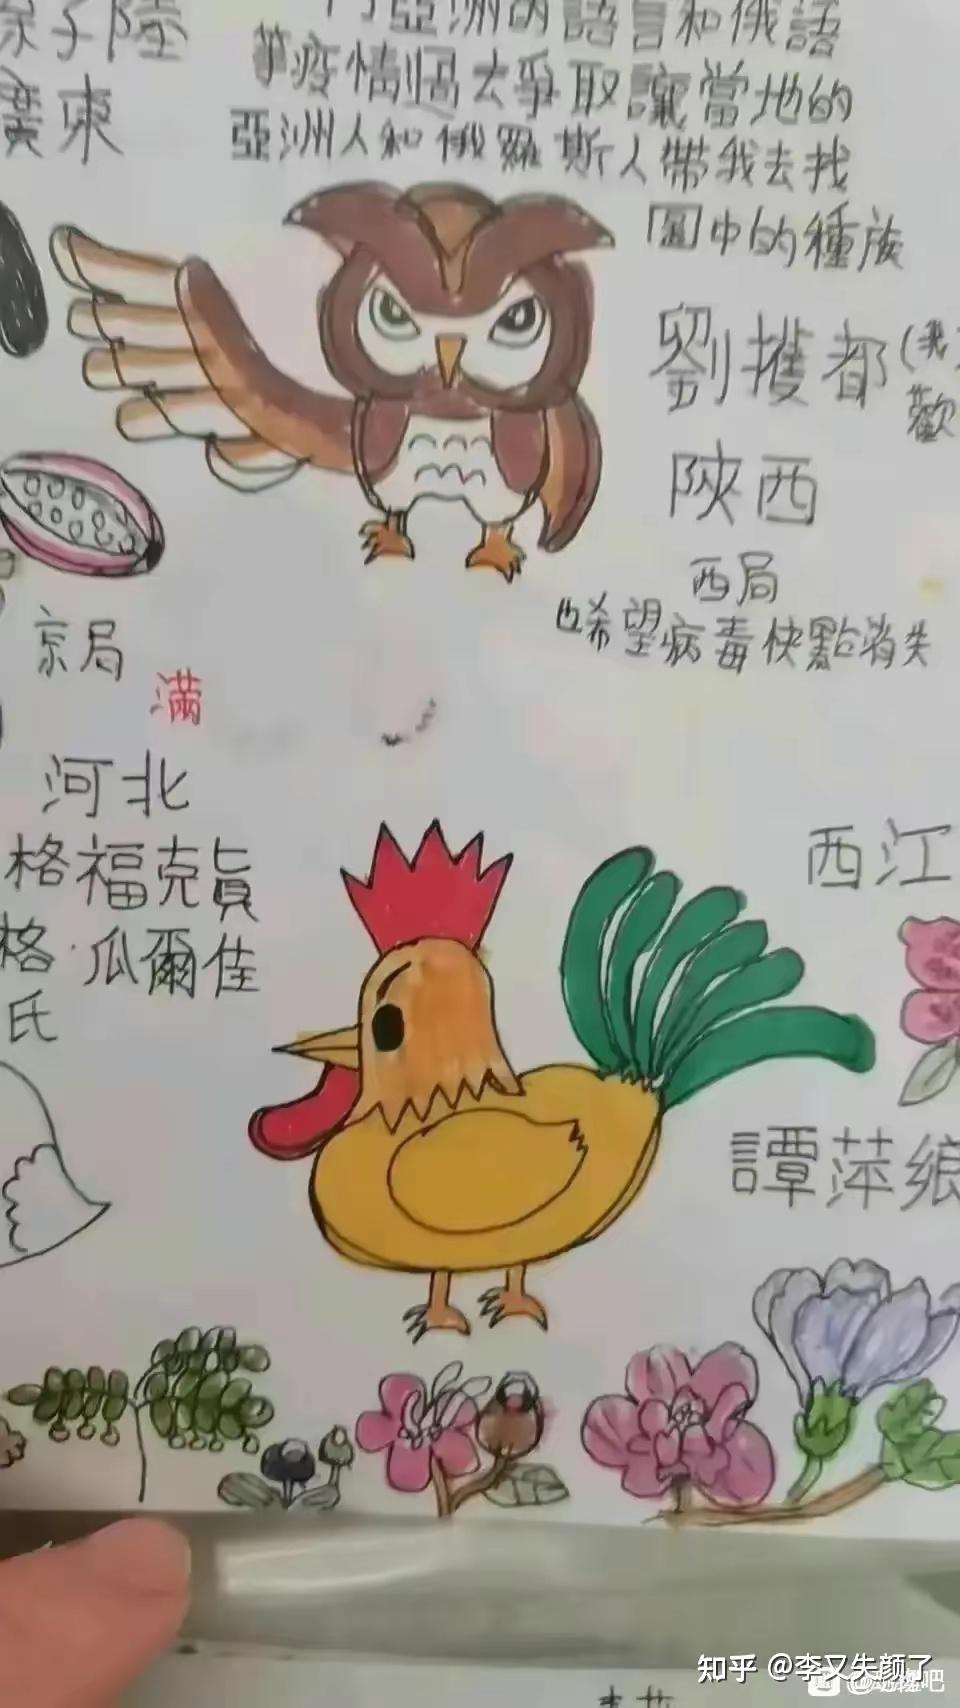 子陸
廣東
亞洲的語言和俄語
疫情歸去爭取讓當地的
亞洲人和俄羅斯人帶我去找
圖中的種族
劉擭都(我
歡
陝西
西局
也希望病毒快點消失
京局
滿
河北
格福克眞
格·瓜爾佳
氏
西江
譚萍鄉
知乎 @李又失颜了